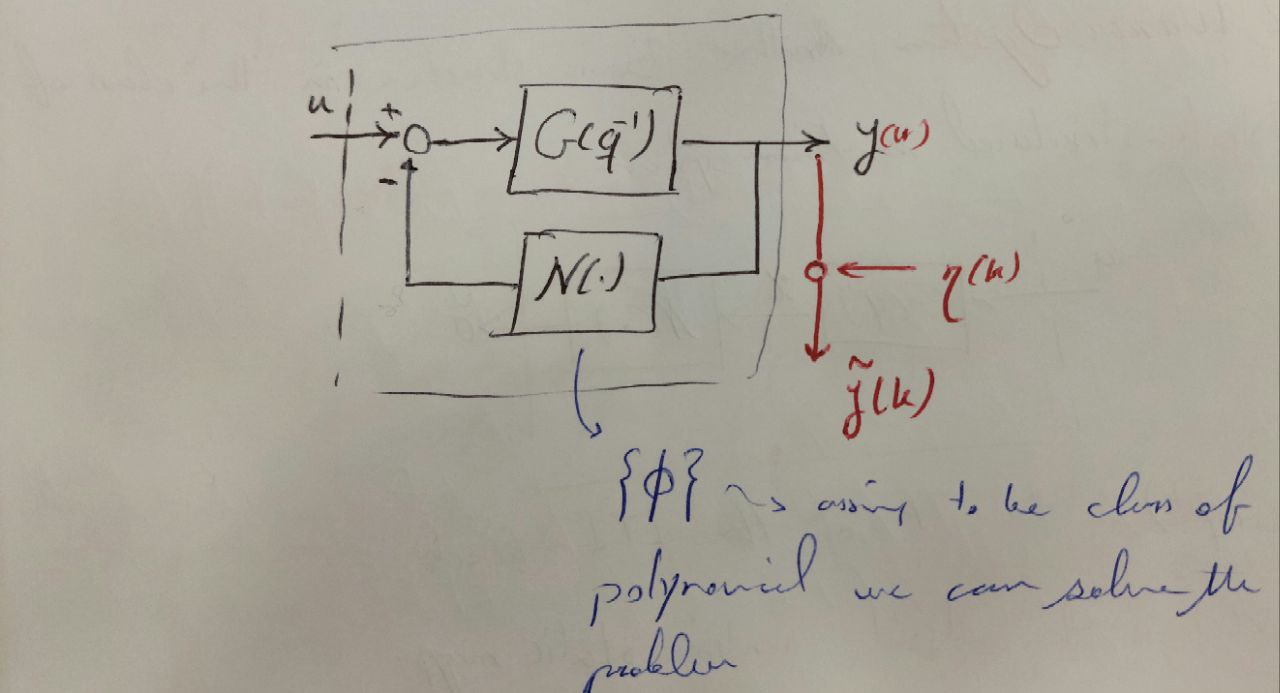 u + G(q⁻¹) y(k)
-
N(·) η(k)
ỹ(k)
{ϕ} ~> assuming to be class of
polynomial we can solve the
problem